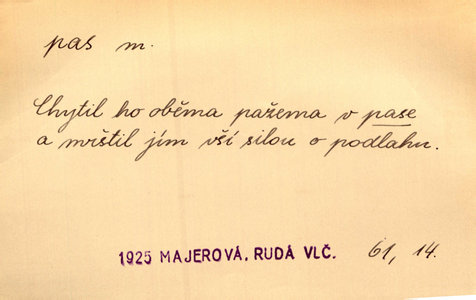 pas m.
Chytil ho oběma pažema v pase
a mrštil jím vší silou o podlahu.
1925 MAJEROVÁ, RUDÁ VLČ. 61, 14.